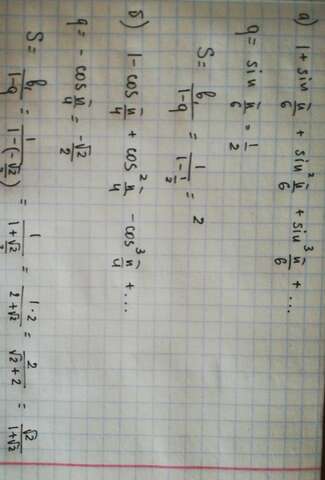 а) 1 + sin π/6 + sin² π/6 + sin³ π/6 + ...
q = sin π/6 = 1/2
S = b₁/(1-q) = 1/(1-1/2) = 2
б) 1 - cos π/4 + cos² π/4 - cos³ π/4 + ...
q = - cos π/4 = -√2/2
S = b₁/(1-q) = 1/(1-(-√2/2)) = 1/(1+√2/2) = 1·2/(2+√2) = 2/(√2+2) = √2/(1+√2)